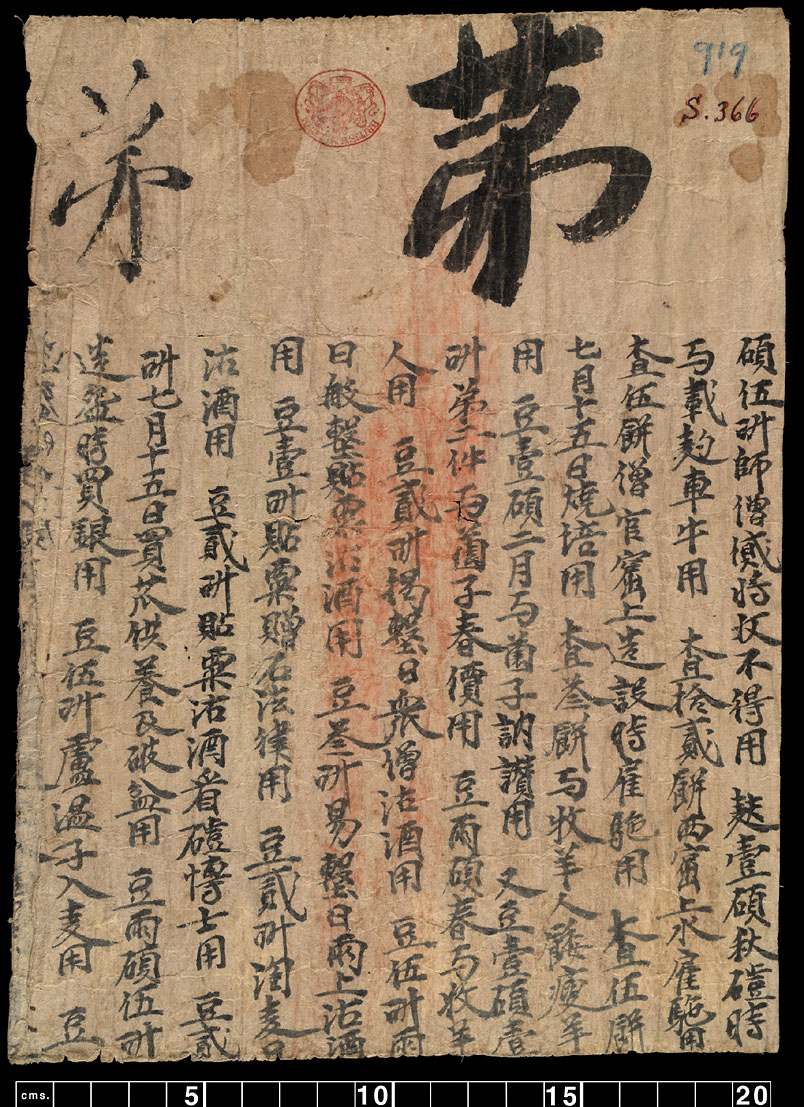 919
S.366
苐
苐
碩伍㪷師僧貸將牧不得用　麩壹碩秋磑時
与載麨車牛用　查拾貳餅西窟上水雇駞用
查伍餅僧官窟上造設時雇駞用　查伍餅
七月十五日燒培用　查叁餅与牧羊人餧瘦羊
用　豆壹碩二月与菌子詶讃用　又豆壹碩壹
㪷第二件与菌子春價用　豆兩碩春与牧羊
人用　豆貳㪷揭墼日衆僧沽酒用　豆伍㪷兩
日般墼貼粟沽酒用　豆叁㪷易墼日兩上沽酒
用　豆壹㪷貼粟贈石法律用　豆貳㪷淘麦日
沽酒用　豆貳㪷貼粟沽酒看磑博士用　豆貳
㪷七月十五日買苽供養及破盆用　豆兩碩伍㪷
造盆時買銀用　豆伍㪷盧温子入麦用　豆
cms.
5
10
15
20